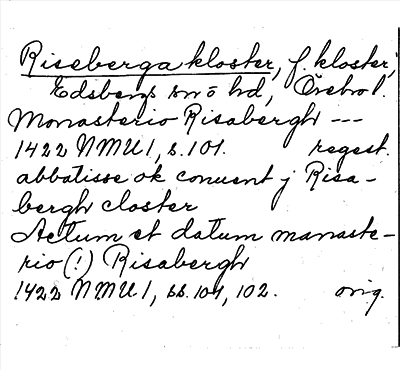 Riseberga kloster, f. kloster,
Edsbergs sn o hd, Örebro l.
Monasterio Risabergh ---
1422 NMU 1, s. 101. regest.
abbatisse ok conuent j Risa-
bergh closter
Actum et datum manaste-
rio (!) Risabergh
1422 NMU 1, ss. 101, 102. orig.